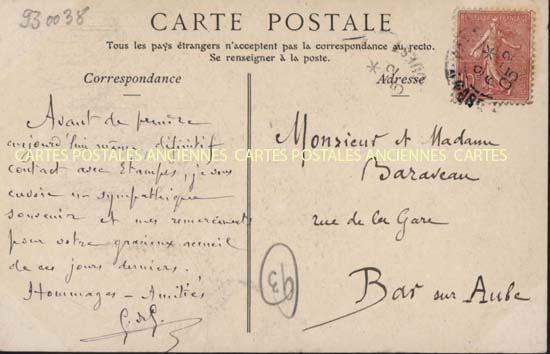 930038
CARTE POSTALE
Tous les pays étrangers n'acceptent pas la correspondance au recto.
Se renseigner à la poste.
Correspondance
Adresse
Avant de
aujourd'hui même définitif
contact avec Etampes, je vous
envoie un sympathique
souvenir et mes remerciements
pour votre gracieux accueil
de ces jours derniers.
Hommages - Amitiés
G. de G.
Monsieur et Madame
Baraveau
rue de la Gare
Bar sur Aube
93
CARTES POSTALES ANCIENNES CARTES POSTALES ANCIENNES CARTES